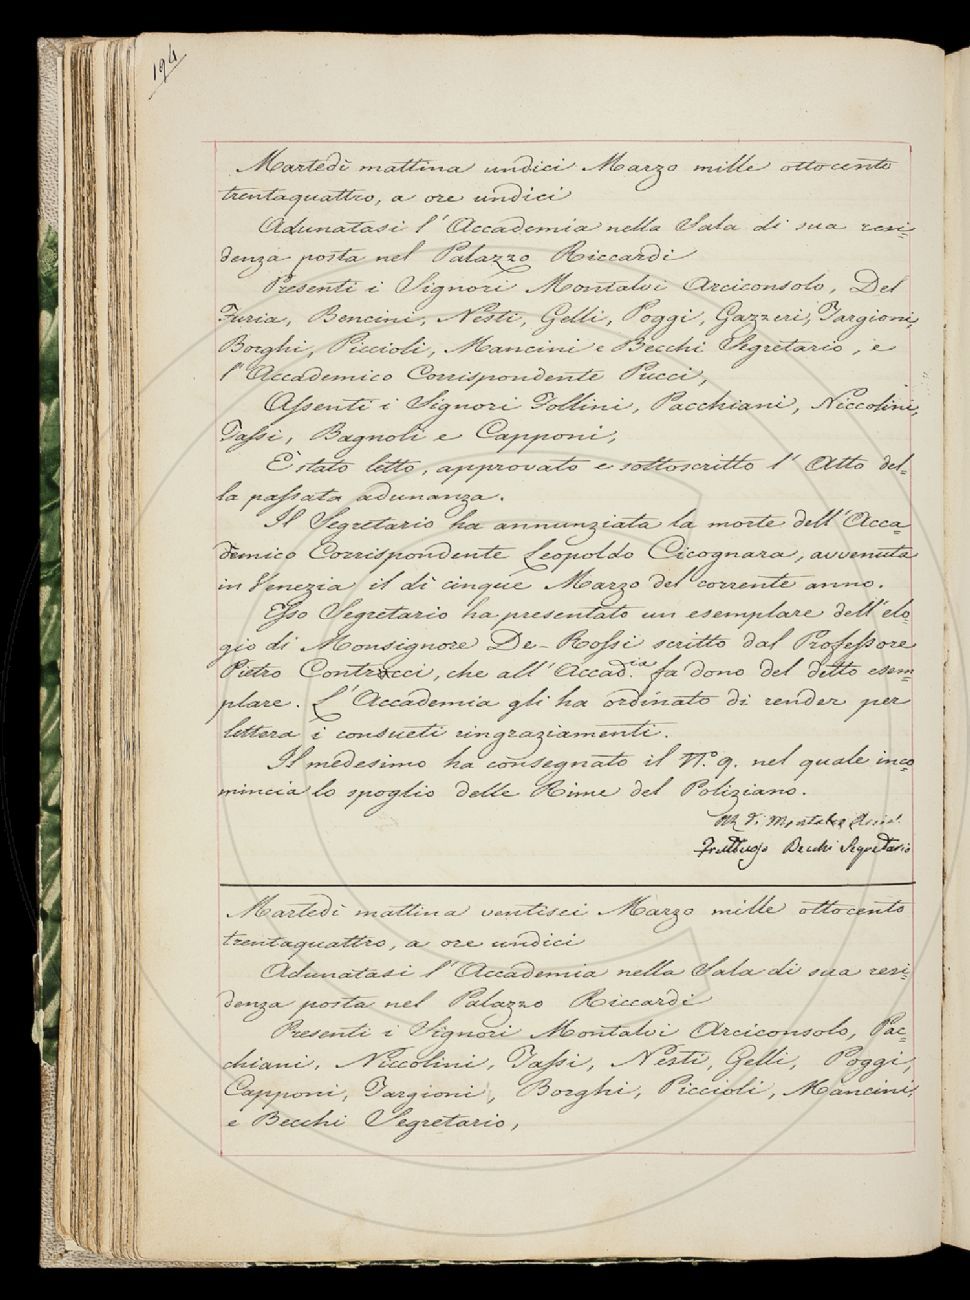 194
Martedì mattina undici Marzo mille ottocento
trentaquattro, a ore undici
Adunatasi l'Accademia nella Sala di sua resi=
denza posta nel Palazzo Riccardi
Presenti i Signori Montalvi Arciconsolo, Del
Furia, Bencini, Nesti, Gelli, Poggi, Gazzeri, Targioni,
Borghi, Piccioli, Mancini e Becchi Segretario, e
l'Accademico Corrispondente Pucci,
Assenti i Signori Follini, Pacchiani, Niccolini,
Tassi, Bagnoli e Capponi,
È stato letto, approvato e sottoscritto l'Atto del=
la passata adunanza.
Il Segretario ha annunziata la morte dell'Acca=
demico Corrispondente Leopoldo Cicognara, avvenuta
in Venezia il dì cinque Marzo del corrente anno.
Esso Segretario ha presentato un esemplare dell'elo=
gio di Monsignore De-Rossi scritto dal Professore
Pietro Contrucci, che all'Accad.ia fa dono del detto esem=
plare. L'Accademia gli ha ordinato di render per
lettera i consueti ringraziamenti.
Il medesimo ha consegnato il N.o 9. nel quale inco=
mincia lo spoglio delle Rime del Poliziano.
Montalvi
Fruttuoso Becchi Segretario
Martedì mattina ventisei Marzo mille ottocento
trentaquattro, a ore undici
Adunatasi l'Accademia nella Sala di sua resi=
denza posta nel Palazzo Riccardi
Presenti i Signori Montalvi Arciconsolo, Pac=
chiani, Niccolini, Tassi, Nesti, Gelli, Poggi,
Capponi, Targioni, Borghi, Piccioli, Mancini,
e Becchi Segretario,